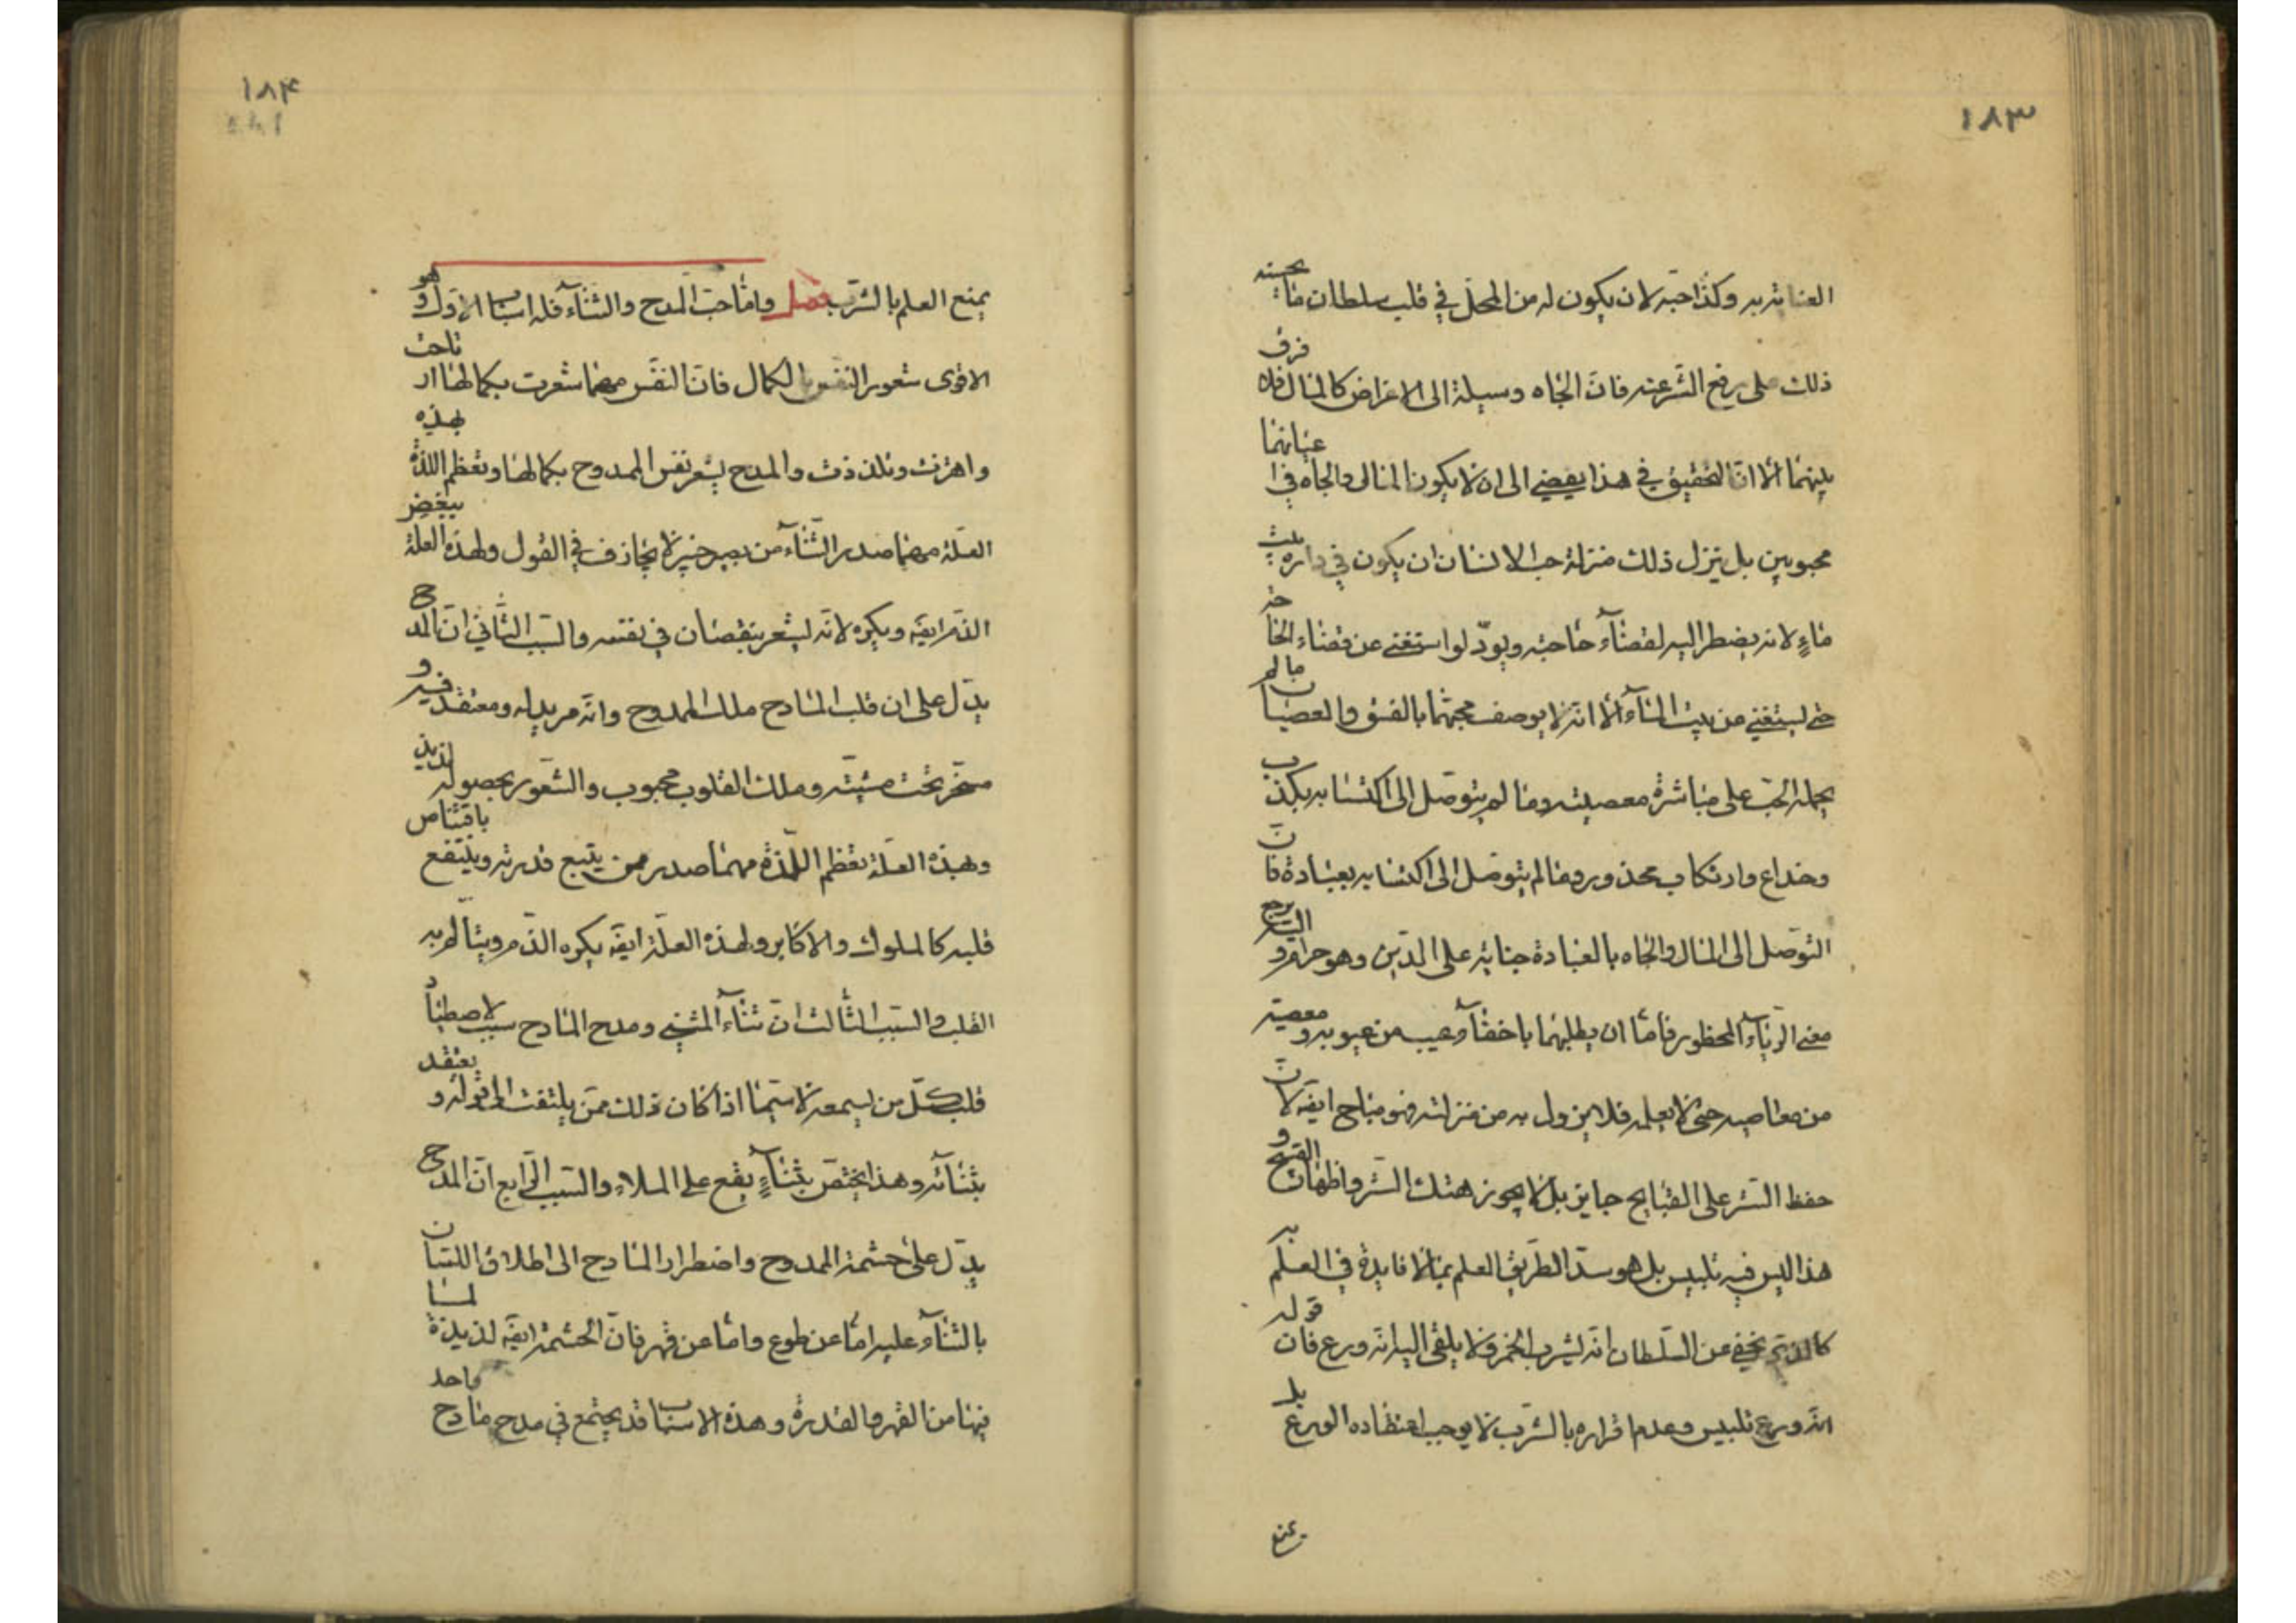 ١٨٣
العناية به وكذا حبّه لان يكون له من المحلّ في قلب سلطان ما يحسنه
ذلك على دفع الشّر عنه فانّ الجاه وسيلة الى الاغراض كالمال فلا فرق
بينهما الّا انّ التحقيق في هذا يفضي الى ان لا يكون المال والجاه في اعيانهما
محبوبين بل ينزل ذلك منزلة حبّ الانسان ان يكون في داره بيت
ماءٍ لانه يضطر اليه لقضآء حاجته ويودّ لو استغنى عن قضاء الحاجة
حتى يستغني من بيت المآء الّا انّه لا يوصف محبّهما بالفسق والعصيان ما لم
يحمله الحبّ على مباشرة معصيته وما لم يتوصّل الى اكتسابه بكذب
وخداع وارتكاب محذور وما لم يتوصّل الى اكتسابه بعبادة فانّ
التوصّل الى المال والجاه بالعبادة جناية على الدّين وهو حرام واليه يرجع
معنى الريآء المحظور فامّا ان يطلبهما باخفآء عيب من عيوبه ومعصية
من معاصيه حتى لا يعلمه فلا يزول به من منزلته فهو مباح ايضه لانّ
حفظ السّتر على القبايح جايز بل لا يجوز هتك السّتر واظهار القبيح و
هذا ليس فيه تلبيس بل هو سدّ الطّريق العلم بما لا فايدة في العلم به
كالذى يخفى عن السّلطان انّه يشرب الخمر ولا يلقى اليه انّه ورع فان قوله
انّه ورع تلبيس وعدم اقراره بالشّرب لا يوجب اعتقاده الورع بل
يمنع
١٨۴
يمنع العلم بالشّرب فصل وامّا حبّ المدح والثنآء فله اسباب الاوّل وهو
الاقوى شعور النفس بالكمال فانّ النفس مهما شعرت بكمالها ارتاحت
واهتزت وتلذذت والمدح يشعر نفس الممدوح بكمالها وتعظم اللذة بهذه
العلّة مهما صدر الثّنآء من بصير خبير لا يجازف في القول ولهذه العلّة يبغض
الذّم ايضه ويكره لانّه يشعر بنقصان في نفسه والسّبب الثّاني انّ المدح
يدّل على ان قلب المادح ملك الممدوح وانّه مريد له ومعتقد فيه و
مسخّر تحت مشيّته وملك القلوب محبوب والشّعور بحصوله لذيذ
وبهذه العلّة تعظم اللّذة مهما صدر ممن يتّسع قدرته وينتفع باقتناص
قلبه كالملوك والاكابر ولهذه العلّة ايضه يكره الذّم ويتألم به
القلب والسّبب الثّالث انّ ثنآء المثني ومدح المادح سبب لاصطياد
قلب كلّ من يسمعه لا سيّما اذا كان ذلك ممّن يلتفت الى قوله ويعتقد
بثنآئه وهذا يختصّ بثنآءٍ يقع على الملاء والسّبب الرّابع انّ المدح
يدّل على حشمة الممدوح واضطرار المادح الى اطلاق اللسان
بالثنآء عليه امّا عن طوع وامّا عن قهر فانّ الحشمة ايضه لذيذة لما
فيها من القهر والقدرة وهذه الاسباب قد يجتمع في مدح مادح واحد